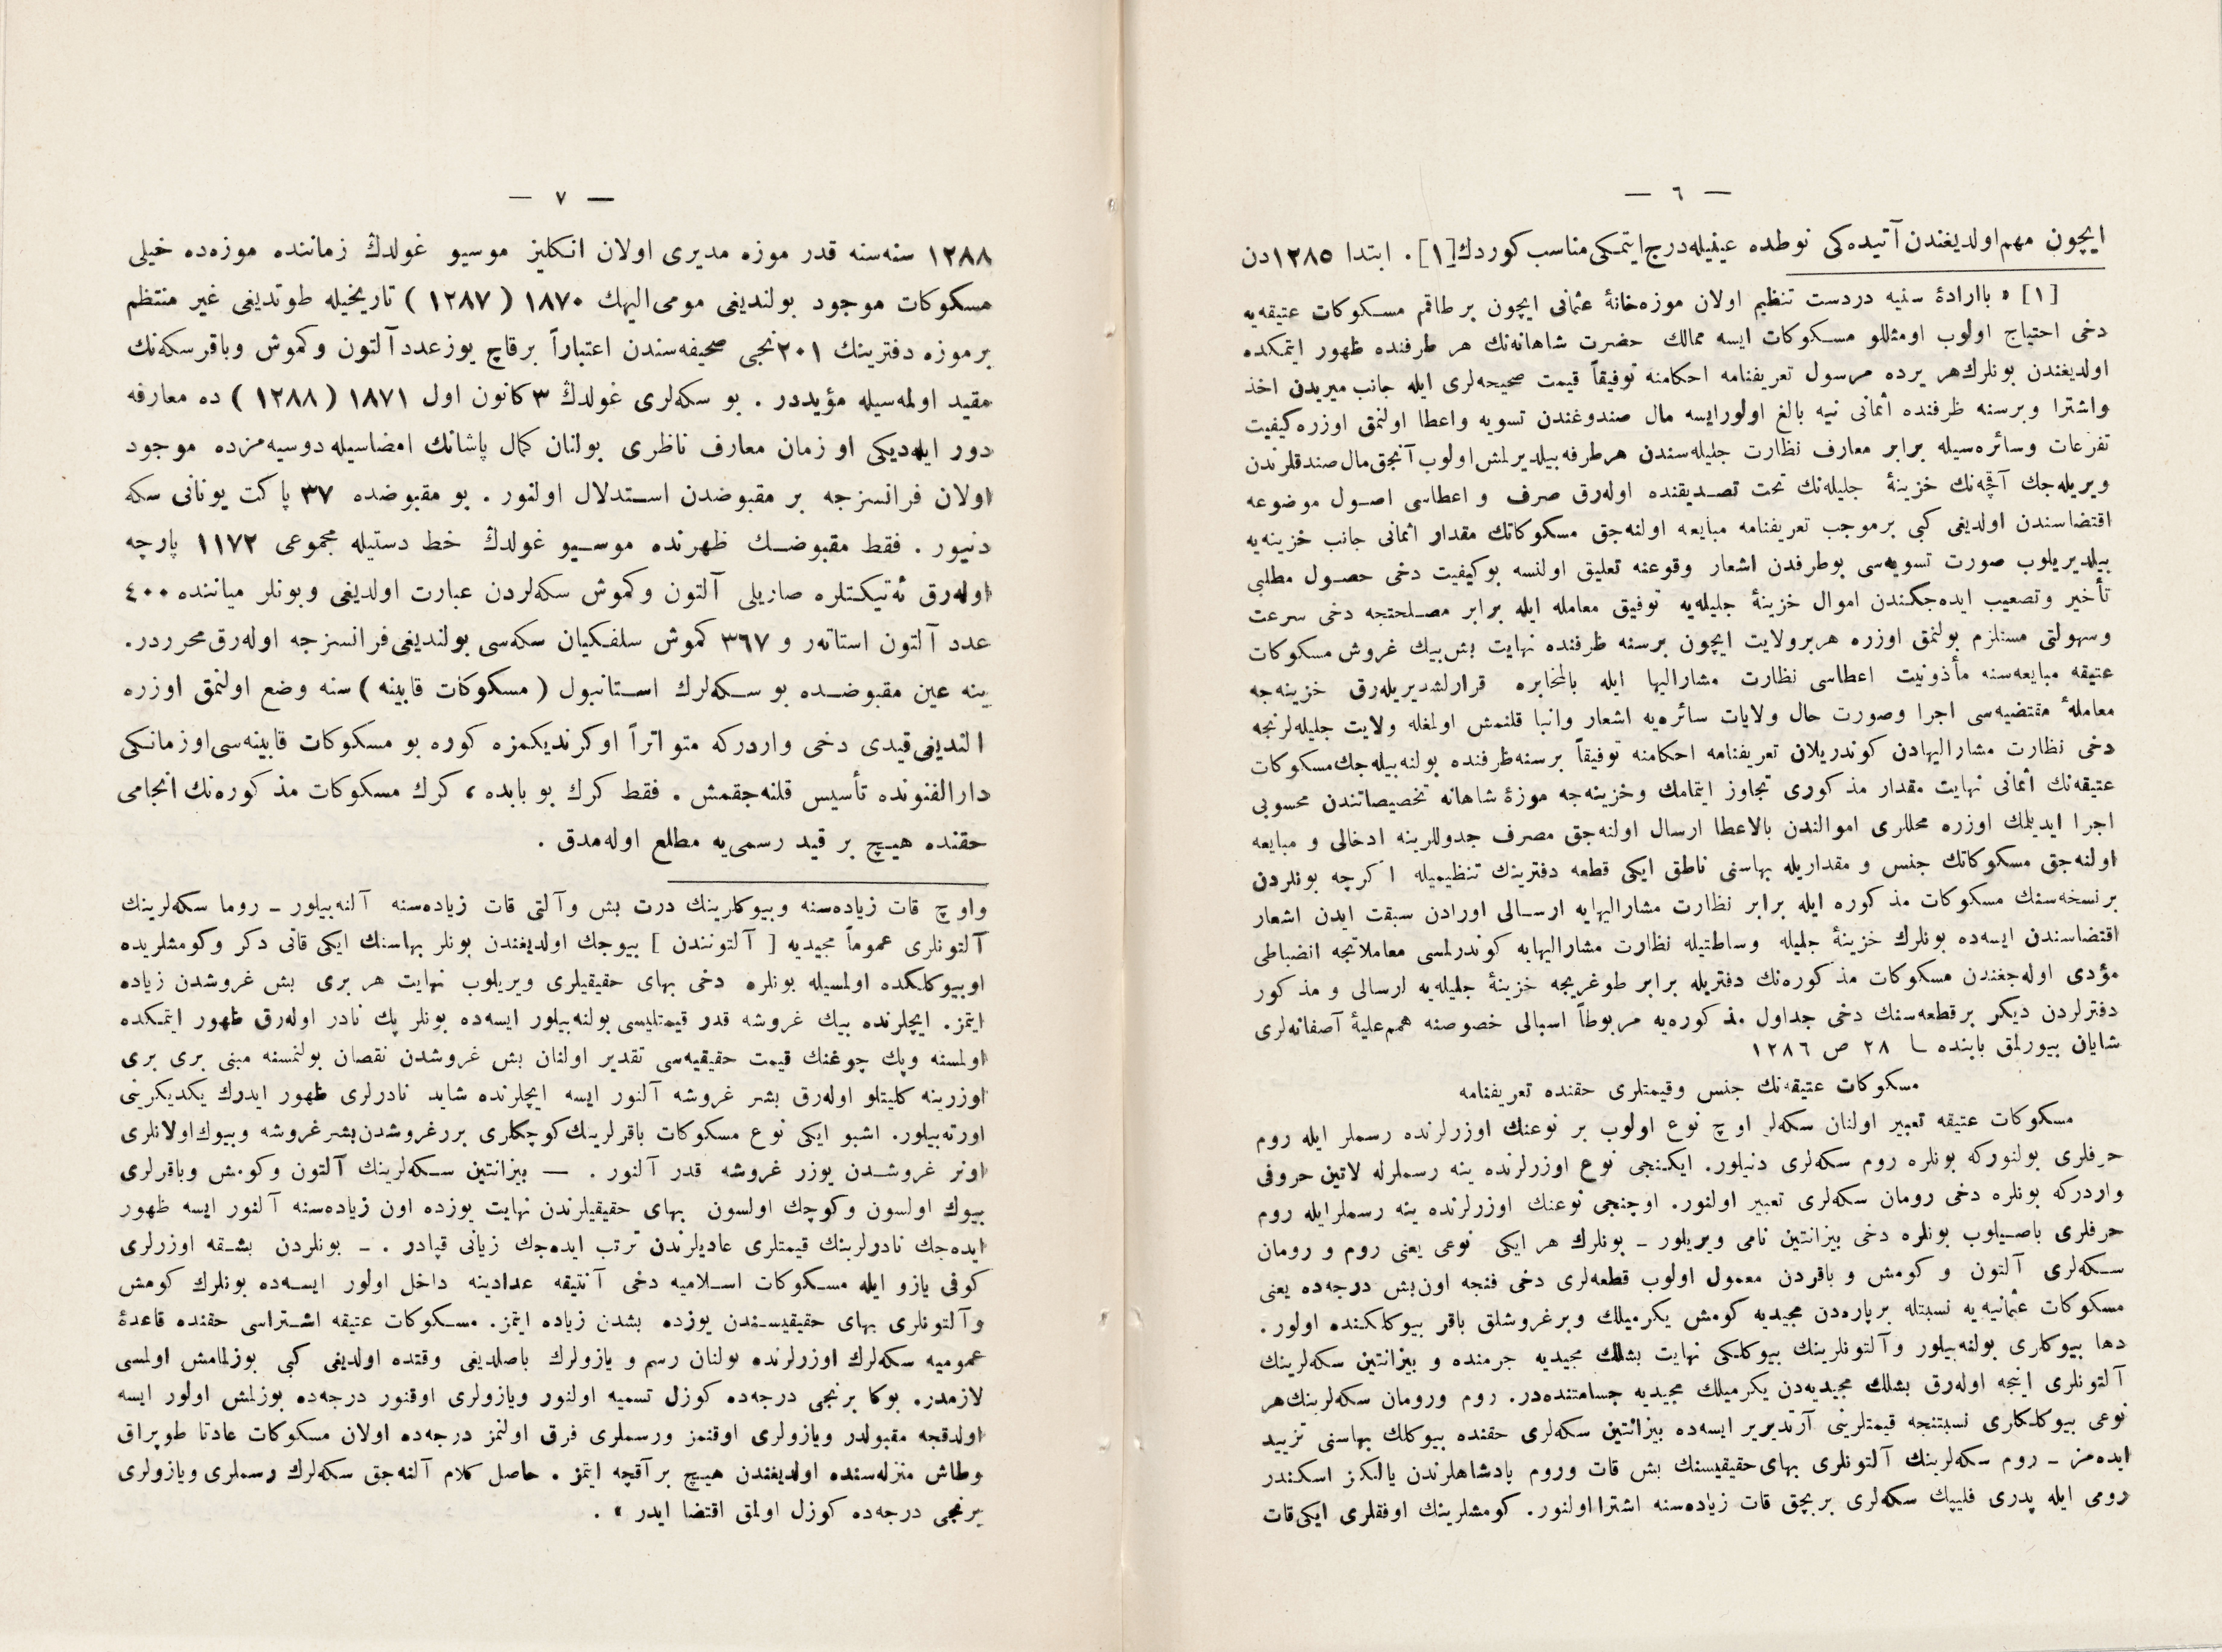 — ٦ —
ایچون مهم اولدیغندن آتیده‌کی نوطده عینیله درج ایتمکی مناسب کوردك[١]. ابتدا ١٢٨٥دن
[١] « باارادهٔ سنیه دردست تنظیم اولان موزه‌خانهٔ عثمانی ایچون بر طاقم مسکوکات عتیقه‌یه
دخی احتیاج اولوب اومثللو مسکوکات ایسه ممالك حضرت شاهانه‌نك هر طرفنده ظهور ایتمکده
اولدیغندن بونلرك هر یرده مرسول تعریفنامه احکامنه توفیقاً قیمت صحیحه‌لری ایله جانب میریدن اخذ
واشترا وبرسنه ظرفنده اثمانی نیه بالغ اولورایسه مال صندوغندن تسویه واعطا اولنمق اوزره کیفیت
تفرعات وسائره‌سیله برابر معارف نظارت جلیله‌سندن هرطرفه بیلدیرلمش اولوب آنجق مال صندقلرندن
ویریله‌جك آقچه‌نك خزینهٔ جلیله‌نك تحت تصدیقنده اوله‌رق صرف و اعطاسی اصول موضوعه
اقتضاسندن اولدیغی کبی برموجب تعریفنامه مبایعه اولنه‌جق مسکوکاتك مقدار اثمانی جانب خزینه‌یه
بیلدیریلوب صورت تسویه‌سی بوطرفدن اشعار وقوعنه تعلیق اولنسه بوکیفیت دخی حصول مطلبی
تأخیر وتصعیب ایده‌جکندن اموال خزینهٔ جلیله‌یه توفیق معامله ایله برابر مصلحتجه دخی سرعت
وسهولتی مستلزم بولنمق اوزره هربرولایت ایچون برسنه ظرفنده نهایت بش‌بیك غروش مسکوکات
عتیقه مبایعه‌سنه مأذونیت اعطاسی نظارت مشارالیها ایله بالمخابره قرارلشدیریله‌رق خزینه‌جه
معاملهٔ مقتضیه‌سی اجرا وصورت حال ولایات سائره‌یه اشعار وانبا قلنمش اولمغله ولایت جلیله‌لرنجه
دخی نظارت مشارالیهادن کوندریلان تعریفنامه احکامنه توفیقاً برسنه ظرفنده بولنه‌بیله‌جك مسکوکات
عتیقه‌نك اثمانی نهایت مقدار مذکوری تجاوز ایتمامك وخزینه‌جه موزهٔ شاهانه تخصیصاتندن محسوبی
اجرا ایدیلمك اوزره محللری اموالندن بالاعطا ارسال اولنه‌جق مصرف جدوللرینه ادخالی و مبایعه
اولنه‌جق مسکوکاتك جنس و مقداریله بهاسنی ناطق ایکی قطعه دفترینك تنظیمیله اکرچه بونلردن
برنسخه‌سنك مسکوکات مذکوره ایله برابر نظارت مشارالیهایه ارسالی اورادن سبقت ایدن اشعار
اقتضاسندن ایسه‌ده بونلرك خزینهٔ جلیله وساطتیله نظارت مشارالیهایه کوندرلمسی معاملاتجه انضباطی
مؤدی اوله‌جغندن مسکوکات مذکوره‌نك دفتریله برابر طوغریجه خزینهٔ جلیله‌یه ارسالی و مذکور
دفترلردن دیکر برقطعه‌سنك دخی جداول مذکوره‌یه مربوطاً اسبالی خصوصنه همم‌علیهٔ آصفانه‌لری
شایان بیورلمق بابنده ٢٨ ص ١٢٨٦
مسکوکات عتیقه‌نك جنس وقیمتلری حقنده تعریفنامه
مسکوکات عتیقه تعبیر اولنان سکه‌لر اوچ نوع اولوب بر نوعنك اوزرلرنده رسملر ایله روم
حرفلری بولنورکه بونلره روم سکه‌لری دنیلور. ایکنجی نوع اوزرلرنده ینه رسملرله لاتین حروفی
واردرکه بونلره دخی رومان سکه‌لری تعبیر اولنور. اوچنجی نوعنك اوزرلرنده ینه رسملرایله روم
حرفلری باصیلوب بونلره دخی بیزانتین نامی ویریلور ـ بونلرك هر ایکی نوعی یعنی روم و رومان
سکه‌لری آلتون و کومش و باقردن معمول اولوب قطعه‌لری دخی فنجه اون‌بش درجه‌ده یعنی
مسکوکات عثمانیه‌یه نسبتله برپاره‌دن مجیدیه کومش یکرمیلك وبرغروشلق باقر بیوکلکنده اولور.
دها بیوکلری بولنه‌بیلور وآلتونلرینك بیوکلکی نهایت بشلك مجیدیه جرمنده و بیزانتین سکه‌لرینك
آلتونلری اینجه اوله‌رق بشلك مجیدیه‌دن یکرمیلك مجیدیه جسامتنده‌در. روم ورومان سکه‌لرینك هر
نوعی بیوکلکلری نسبتنجه قیمتلرینی آرتدیریر ایسه‌ده بیزانتین سکه‌لری حقنده بیوکلك بهاسنی تزیید
ایده‌مز ـ روم سکه‌لرینك آلتونلری بهای حقیقیسنك بش قات وروم پادشاهلرندن یالکز اسکندر
رومی ایله پدری فلیپك سکه‌لری بربچق قات زیاده‌سنه اشترا اولنور. کومشلرینك اوفقلری ایکی قات
— ٧ —
١٢٨٨ سنه‌سنه قدر موزه مدیری اولان انکلیز موسیو غولدڭ زماننده موزه‌ده خیلی
مسکوکات موجود بولندیغی مومی‌الیهك ١٨٧٠ ( ١٢٨٧ ) تاریخیله طوتدیغی غیر منتظم
برموزه دفترینك ٢٠١نجی صحیفه‌سندن اعتباراً برقاچ یوزعدد آلتون وکموش وباقرسکه‌نك
مقید اولمه‌سیله مؤیددر . بو سکه‌لری غولدڭ ٣ کانون اول ١٨٧١ ( ١٢٨٨ ) ده معارفه
دور ایله‌دیکی او زمان معارف ناظری بولنان کمال پاشانك امضاسیله دوسیه‌مزده موجود
اولان فرانسزجه بر مقبوضدن استدلال اولنور . بو مقبوضده ٣٧ پاکت یونانی سکه
دنیور . فقط مقبوضك ظهرنده موسیو غولدڭ خط دستیله مجموعی ١١٧٢ پارچه
اوله‌رق ئه‌تیکتلره صازیلی آلتون وکموش سکه‌لردن عبارت اولدیغی وبونلر میاننده ٤٠٠
عدد آلتون استاته‌ر و ٣٦٧ کموش سلفکیان سکه‌سی بولندیغی فرانسزجه اوله‌رق محرردر.
ینه عین مقبوضده بو سکه‌لرك استانبول ( مسکوکات قابینه ) سنه وضع اولنمق اوزره
الندیغی قیدی دخی واردرکه متواتراً اوکرندیکمزه کوره بو مسکوکات قابینه‌سی اوزمانکی
دارالفنونده تأسیس قلنه‌جقمش . فقط کرك بو بابده ، کرك مسکوکات مذکوره‌نك انجامی
حقنده هیچ بر قید رسمی‌یه مطلع اوله‌مدق .
واوچ قات زیاده‌سنه وبیوکلرینك درت بش وآلتی قات زیاده‌سنه آلنه‌بیلور ـ روما سکه‌لرینك
آلتونلری عموماً مجیدیه [ آلتونندن ] بیوجك اولدیغندن بونلر بهاسنك ایکی قاتی دکر وکومشلریده
اوبیوکلکده اولمسیله بونلره دخی بهای حقیقیلری ویریلوب نهایت هر بری بش غروشدن زیاده
ایتمز. ایچلرنده بیك غروشه قدر قیمتلیسی بولنه‌بیلور ایسه‌ده بونلر پك نادر اوله‌رق ظهور ایتمکده
اولمسنه وپك چوغنك قیمت حقیقیه‌سی تقدیر اولنان بش غروشدن نقصان بولنمسنه مبنی بری بری
اوزرینه کلیتلو اوله‌رق بشر غروشه آلنور ایسه ایچلرنده شاید نادرلری ظهور ایدرك یکدیکرینی
اورته‌بیلور. اشبو ایکی نوع مسکوکات باقرلرینك کوچکلری بررغروشدن بشرغروشه وبیوك اولانلری
اونر غروشدن یوزر غروشه قدر آلنور . — بیزانتین سکه‌لرینك آلتون وکومش وباقرلری
بیوك اولسون وکوچك اولسون بهای حقیقیلرندن نهایت یوزده اون زیاده‌سنه آلنور ایسه ظهور
ایده‌جك نادرلرینك قیمتلری عادیلرندن ترتب ایده‌جك زیانی قپادر . ـ بونلردن بشقه اوزرلری
کوفی یازو ایله مسکوکات اسلامیه دخی آنتیقه عدادینه داخل اولور ایسه‌ده بونلرك کومش
وآلتونلری بهای حقیقیسندن یوزده بشدن زیاده ایتمز. مسکوکات عتیقه اشتراسی حقنده قاعدهٔ
عمومیه سکه‌لرك اوزرلرنده بولنان رسم و یازولرك باصلدیغی وقتده اولدیغی کبی بوزلمامش اولمسی
لازمدر. بوکا برنجی درجه‌ده کوزل تسمیه اولنور ویازولری اوقنور درجه‌ده بوزلمش اولور ایسه
اولدقجه مقبولدر ویازولری اوقنمز ورسملری فرق اولنمز درجه‌ده اولان مسکوکات عادتا طوپراق
وطاش منزله‌سنده اولدیغندن هیچ برآقچه ایتمز . حاصل کلام آلنه‌جق سکه‌لرك رسملری ویازولری
برنجی درجه‌ده کوزل اولمق اقتضا ایدر » .